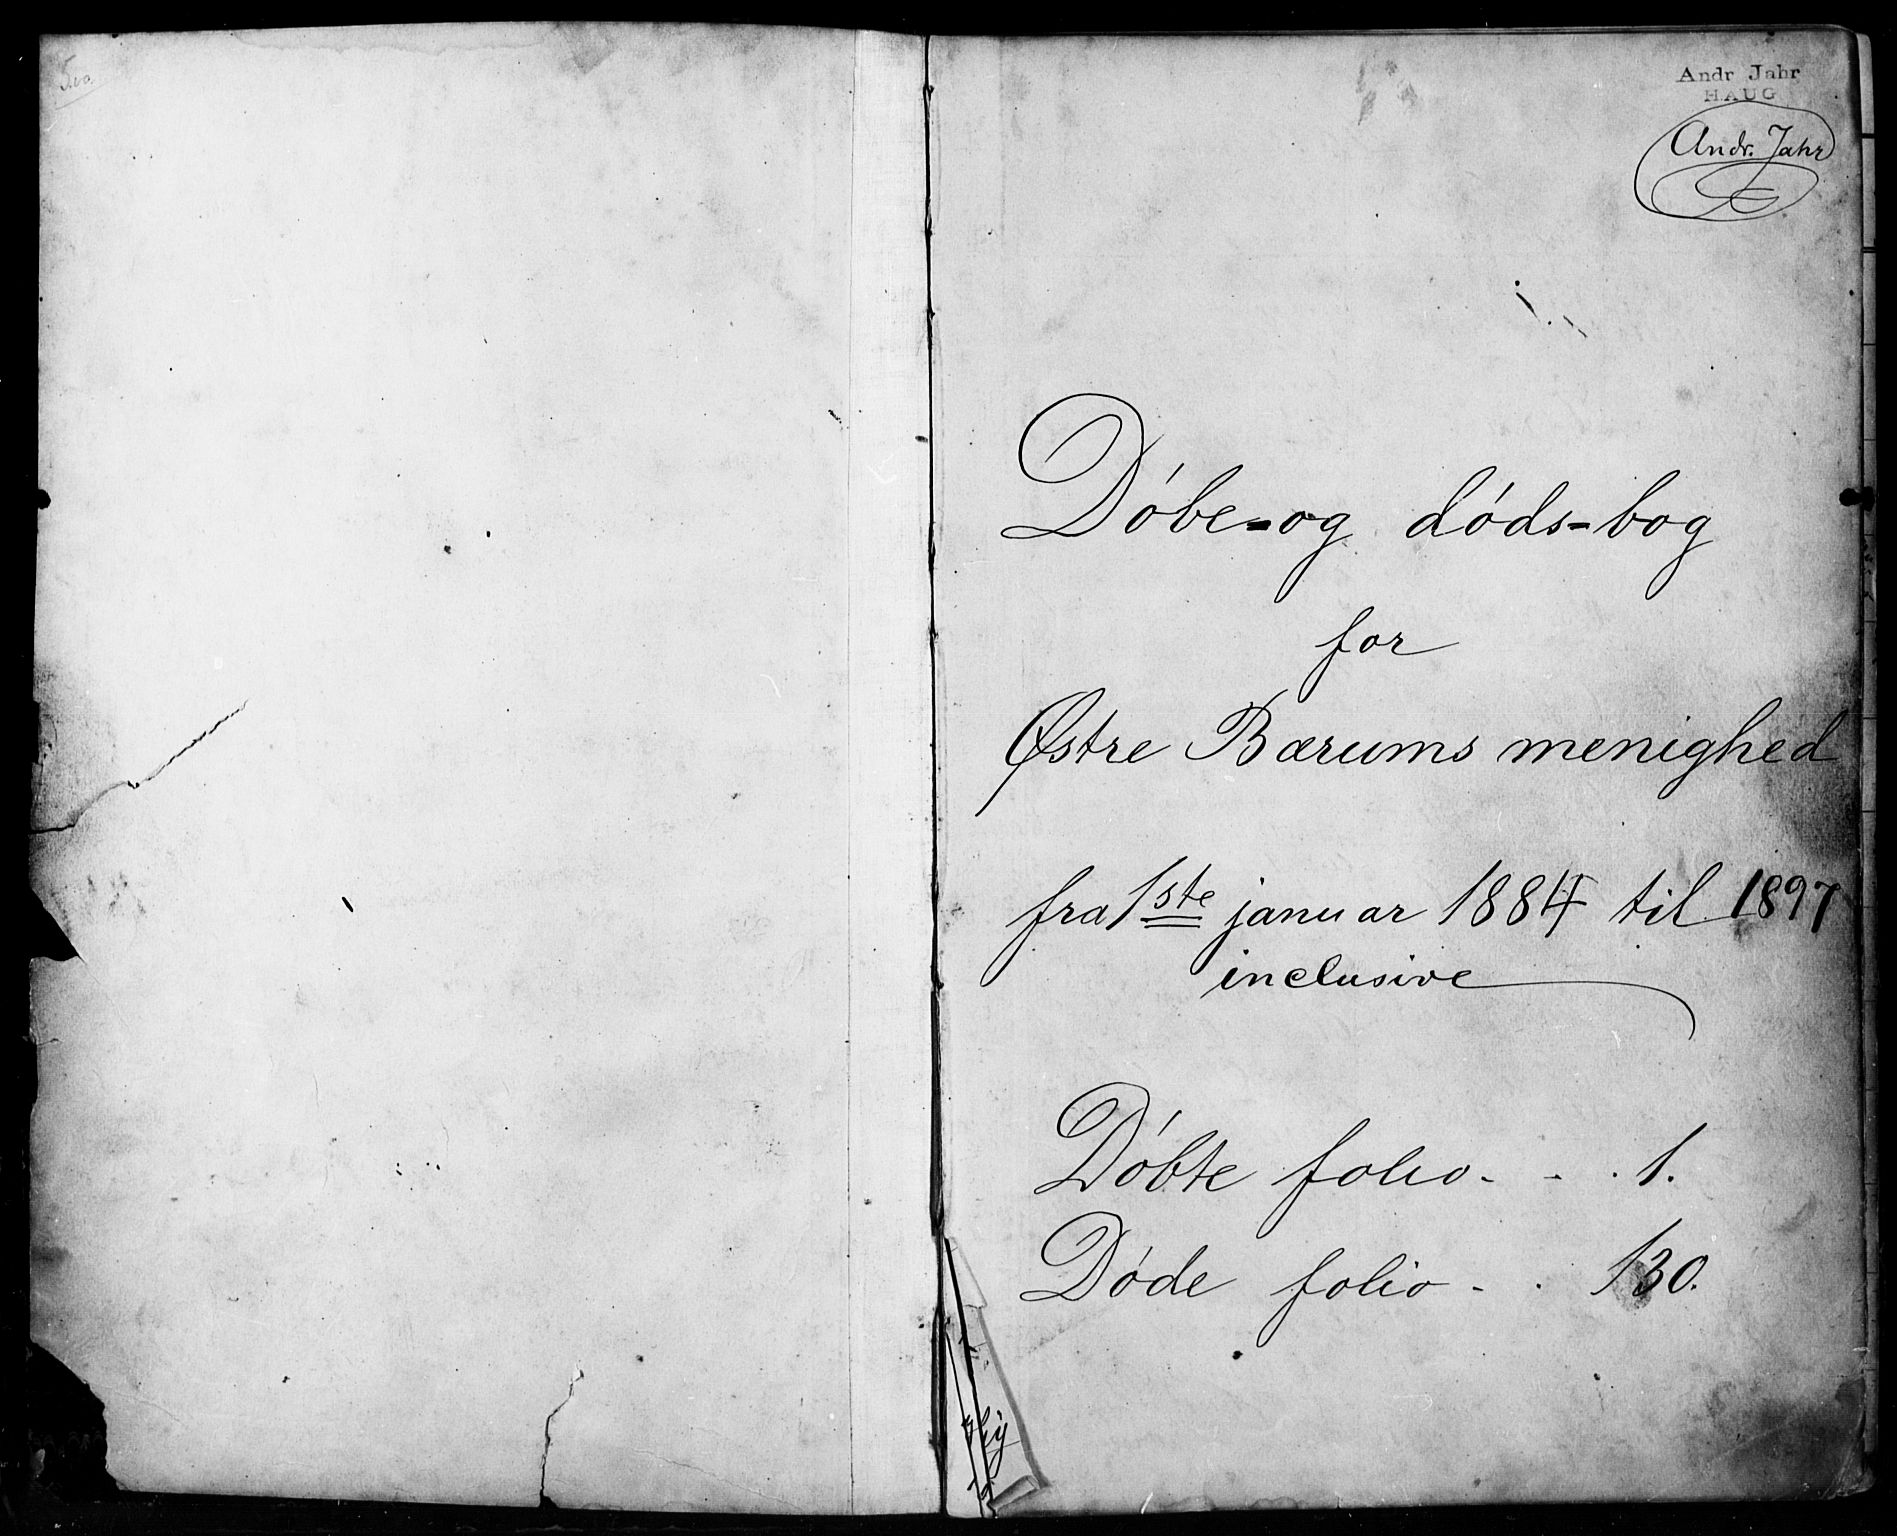 5.00.
Andr Jahr
HAUG
Andr. Jahr
Døbe-og døds-bog
for
Østre Bærums menighed
fra 1ste januar 1884 til 1897
inclusive
Døbte folio - - . 1.
Døde folio - . 130.